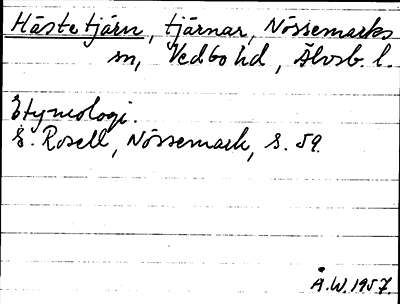 Hästetjärn, tjärnar, Nössemarks
sn, Vedbo hd, Älvsb. l.
Etymologi.
E. Rosell, Nössemark, s. 59.
Å.W. 1957.